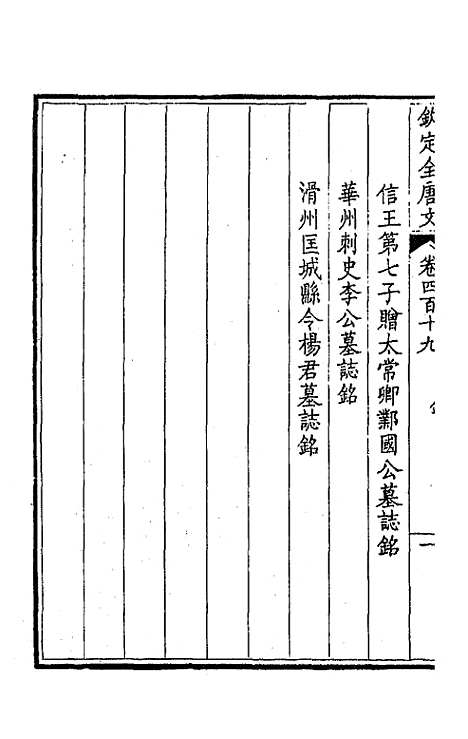 欽定全唐文
卷四百十九
一
信王第七子贈太常卿酆國公墓誌銘
華州刺史李公墓誌銘
滑州匡城縣令楊君墓誌銘